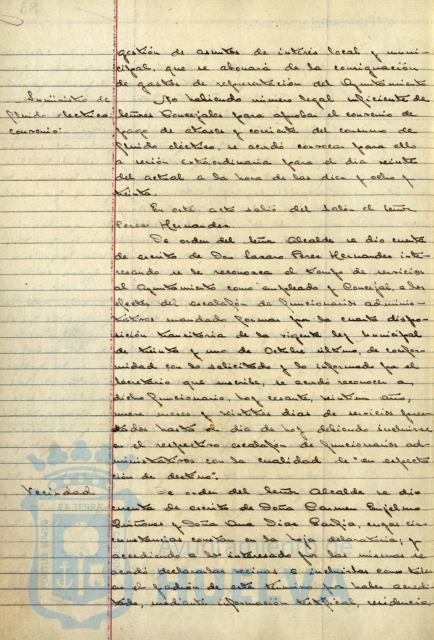 gestión de asuntos de interés local y muni-
cipal, que se abonará de la consignación
de gastos de representación del Ayuntamiento
Suministro de
fluido electrico
convenio:
No habiendo número legal suficiente de
Señores Concejales para aprobar el convenio de
pago de atrasos y corriente del consumo de
fluido eléctrico, se acordó convocar para ello
a sesión extraordinaria para el dia veinte
del actual a la hora de las diez y ocho y
treinta.
En este acto salió del salón el Señor
Perez Hernandez.
De orden del Señor Alcalde se dio cuenta
de escrito de Don Lazaro Perez Hernandez inte-
resando se le reconozca el tiempo de servicios
al Ayuntamiento como empleado y Concejal, a los
efectos del escalafón de funcionarios adminis-
trativos mandado formar por la cuarta dispo-
sición transitoria de la vigente ley municipal
de treinta y uno de Octubre último, de confor-
midad con lo solicitado y lo informado por el
Secretario que suscribe, se acordó reconocer a
dicho funcionario, hoy cesante, veintiun años,
nueve meses y veintitres dias de servicios
hasta el dia de hoy debiendo incluirse
en el respectivo escalafon de funcionarios ad-
ministrativos con la cualidad de "en especta-
ción de destino".
Vecindad
De orden del Señor Alcalde se dio
cuenta de escrito de Doña Carmen
Quiñones y Doña Ana Diaz cuyas cir-
cunstancias constan en la hoja declaratoria; y
accediendo a lo interesado por las mismas se
acordó declararlas vecinas e incluirlas como tales
en el padrón de este término por haber acredi-
tado, mediante información testifical, residencia
AYUNTAMIENTO DE
HUELVA